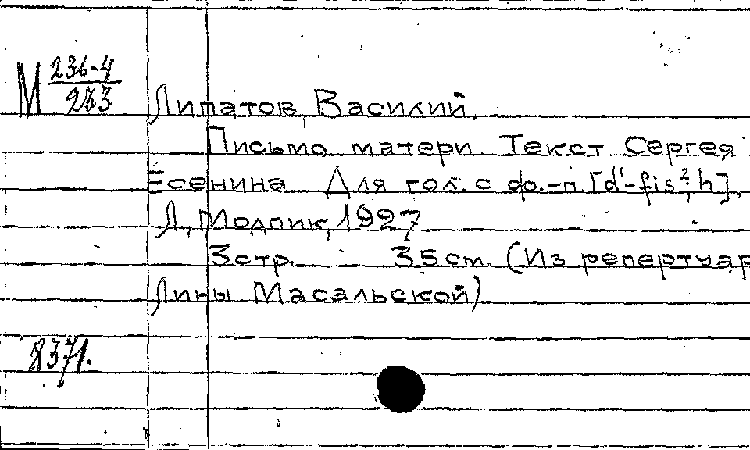 М 236-4
253
Липатов, Василий.
Письмо матери. Текст Сергея
Есенина. Для гол. с ф.-п. [d¹-fis², h].
Л., Модпик, 1927
3 стр. 35 см. (Из репертуар
Лины Масальской)
8371.